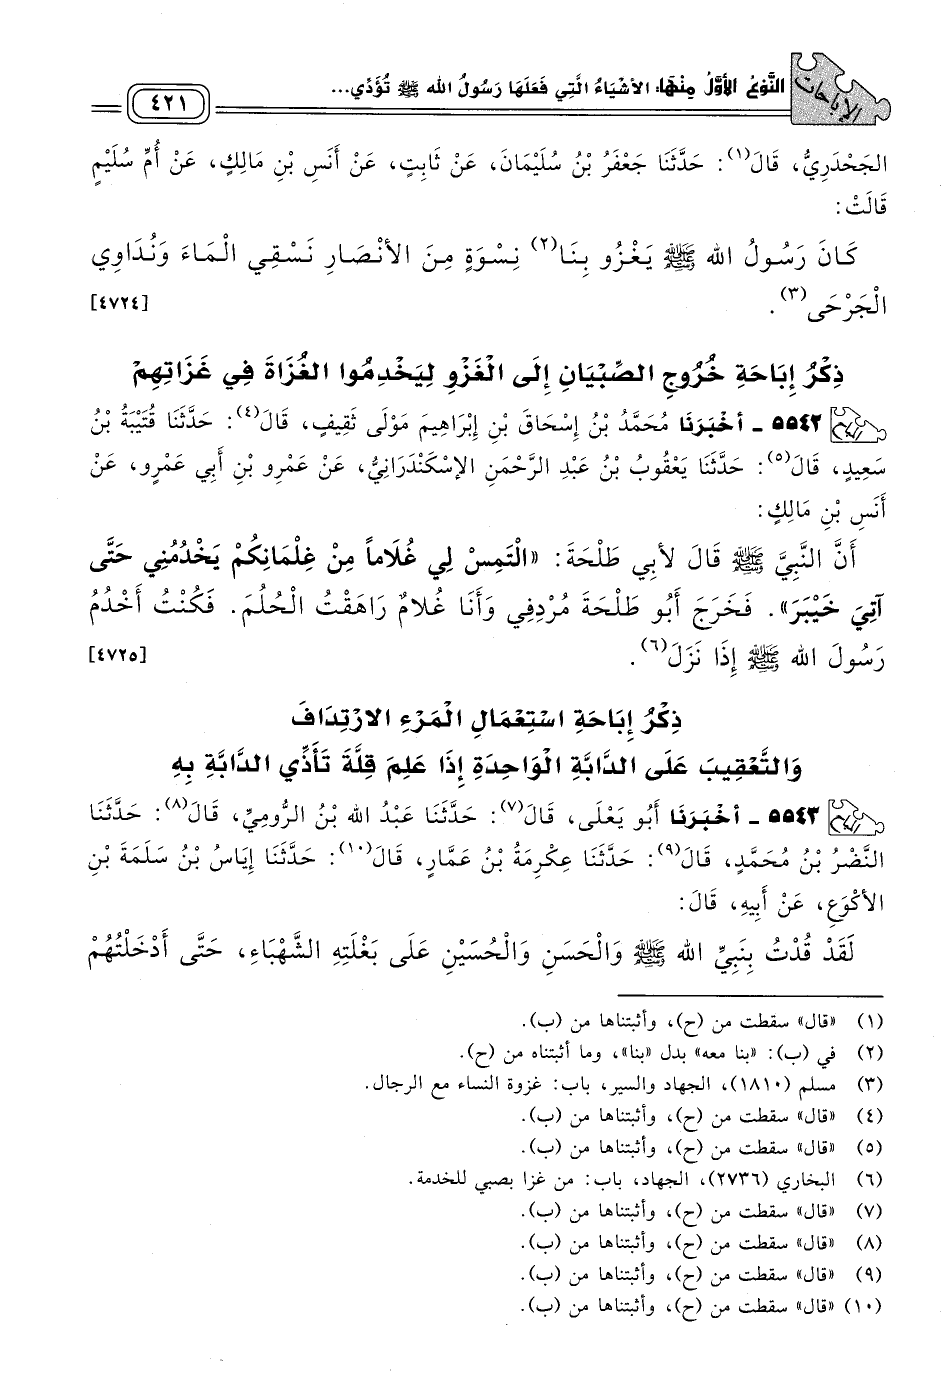 الإباحات
النَّوْعُ الأَوَّلُ مِنْهَا: الأَشْيَاءُ الَّتِي فَعَلَهَا رَسُولُ الله ﷺ تُؤَدِّي...
٤٢١
الجَحْدَرِيُّ، قَالَ(١): حَدَّثَنَا جَعْفَرُ بْنُ سُلَيْمَانَ، عَنْ ثَابِتٍ، عَنْ أَنَسِ بْنِ مَالِكٍ، عَنْ أُمِّ سُلَيْمٍ
قَالَتْ:
كَانَ رَسُولُ الله ﷺ يَغْزُو بِنَا(٢) نِسْوَةٍ مِنَ الأَنْصَارِ نَسْقِي الْمَاءَ وَنُدَاوِي
الْجَرْحَى(٣). [٤٧٢٤]
ذِكْرُ إِبَاحَةِ خُرُوجِ الصِّبْيَانِ إِلَى الْغَزْوِ لِيَخْدِمُوا الغُزَاةَ فِي غَزَاتِهِمْ
٥٥٤٢ - أَخْبَرَنَا مُحَمَّدُ بْنُ إِسْحَاقَ بْنِ إِبْرَاهِيمَ مَوْلَى ثَقِيفٍ، قَالَ(٤): حَدَّثَنَا قُتَيْبَةُ بْنُ
سَعِيدٍ، قَالَ(٥): حَدَّثَنَا يَعْقُوبُ بْنُ عَبْدِ الرَّحْمَنِ الإِسْكَنْدَرَانِيُّ، عَنْ عَمْرِو بْنِ أَبِي عَمْرٍو، عَنْ
أَنَسِ بْنِ مَالِكٍ:
أَنَّ النَّبِيَّ ﷺ قَالَ لأَبِي طَلْحَةَ: «الْتَمِسْ لِي غُلَاماً مِنْ غِلْمَانِكُمْ يَخْدُمُنِي حَتَّى
آتِيَ خَيْبَرَ». فَخَرَجَ أَبُو طَلْحَةَ مُرْدِفِي وَأَنَا غُلامٌ رَاهَقْتُ الْحُلُمَ. فَكُنْتُ أَخْدُمُ
رَسُولَ الله ﷺ إِذَا نَزَلَ(٦). [٤٧٢٥]
ذِكْرُ إِبَاحَةِ اسْتِعْمَالِ الْمَرْءِ الارْتِدَافَ
وَالتَّعْقِيبَ عَلَى الدَّابَّةِ الْوَاحِدَةِ إِذَا عَلِمَ قِلَّةَ تَأَذِّي الدَّابَّةِ بِهِ
٥٥٤٣ - أَخْبَرَنَا أَبُو يَعْلَى، قَالَ(٧): حَدَّثَنَا عَبْدُ الله بْنُ الرُّومِيِّ، قَالَ(٨): حَدَّثَنَا
النَّضْرُ بْنُ مُحَمَّدٍ، قَالَ(٩): حَدَّثَنَا عِكْرِمَةُ بْنُ عَمَّارٍ، قَالَ(١٠): حَدَّثَنَا إِيَاسُ بْنُ سَلَمَةَ بْنِ
الأَكْوَعِ، عَنْ أَبِيهِ، قَالَ:
لَقَدْ قُدْتُ بِنَبِيِّ الله ﷺ وَالْحَسَنِ وَالْحُسَيْنِ عَلَى بَغْلَتِهِ الشَّهْبَاءِ، حَتَّى أَدْخَلْتُهُمْ
(١) «قال» سقطت من (ح)، وأثبتناها من (ب).
(٢) في (ب): «بنا معه» بدل «بنا»، وما أثبتناه من (ح).
(٣) مسلم (١٨١٠)، الجهاد والسير، باب: غزوة النساء مع الرجال.
(٤) «قال» سقطت من (ح)، وأثبتناها من (ب).
(٥) «قال» سقطت من (ح)، وأثبتناها من (ب).
(٦) البخاري (٢٧٣٦)، الجهاد، باب: من غزا بصبي للخدمة.
(٧) «قال» سقطت من (ح)، وأثبتناها من (ب).
(٨) «قال» سقطت من (ح)، وأثبتناها من (ب).
(٩) «قال» سقطت من (ح)، وأثبتناها من (ب).
(١٠) «قال» سقطت من (ح)، وأثبتناها من (ب).